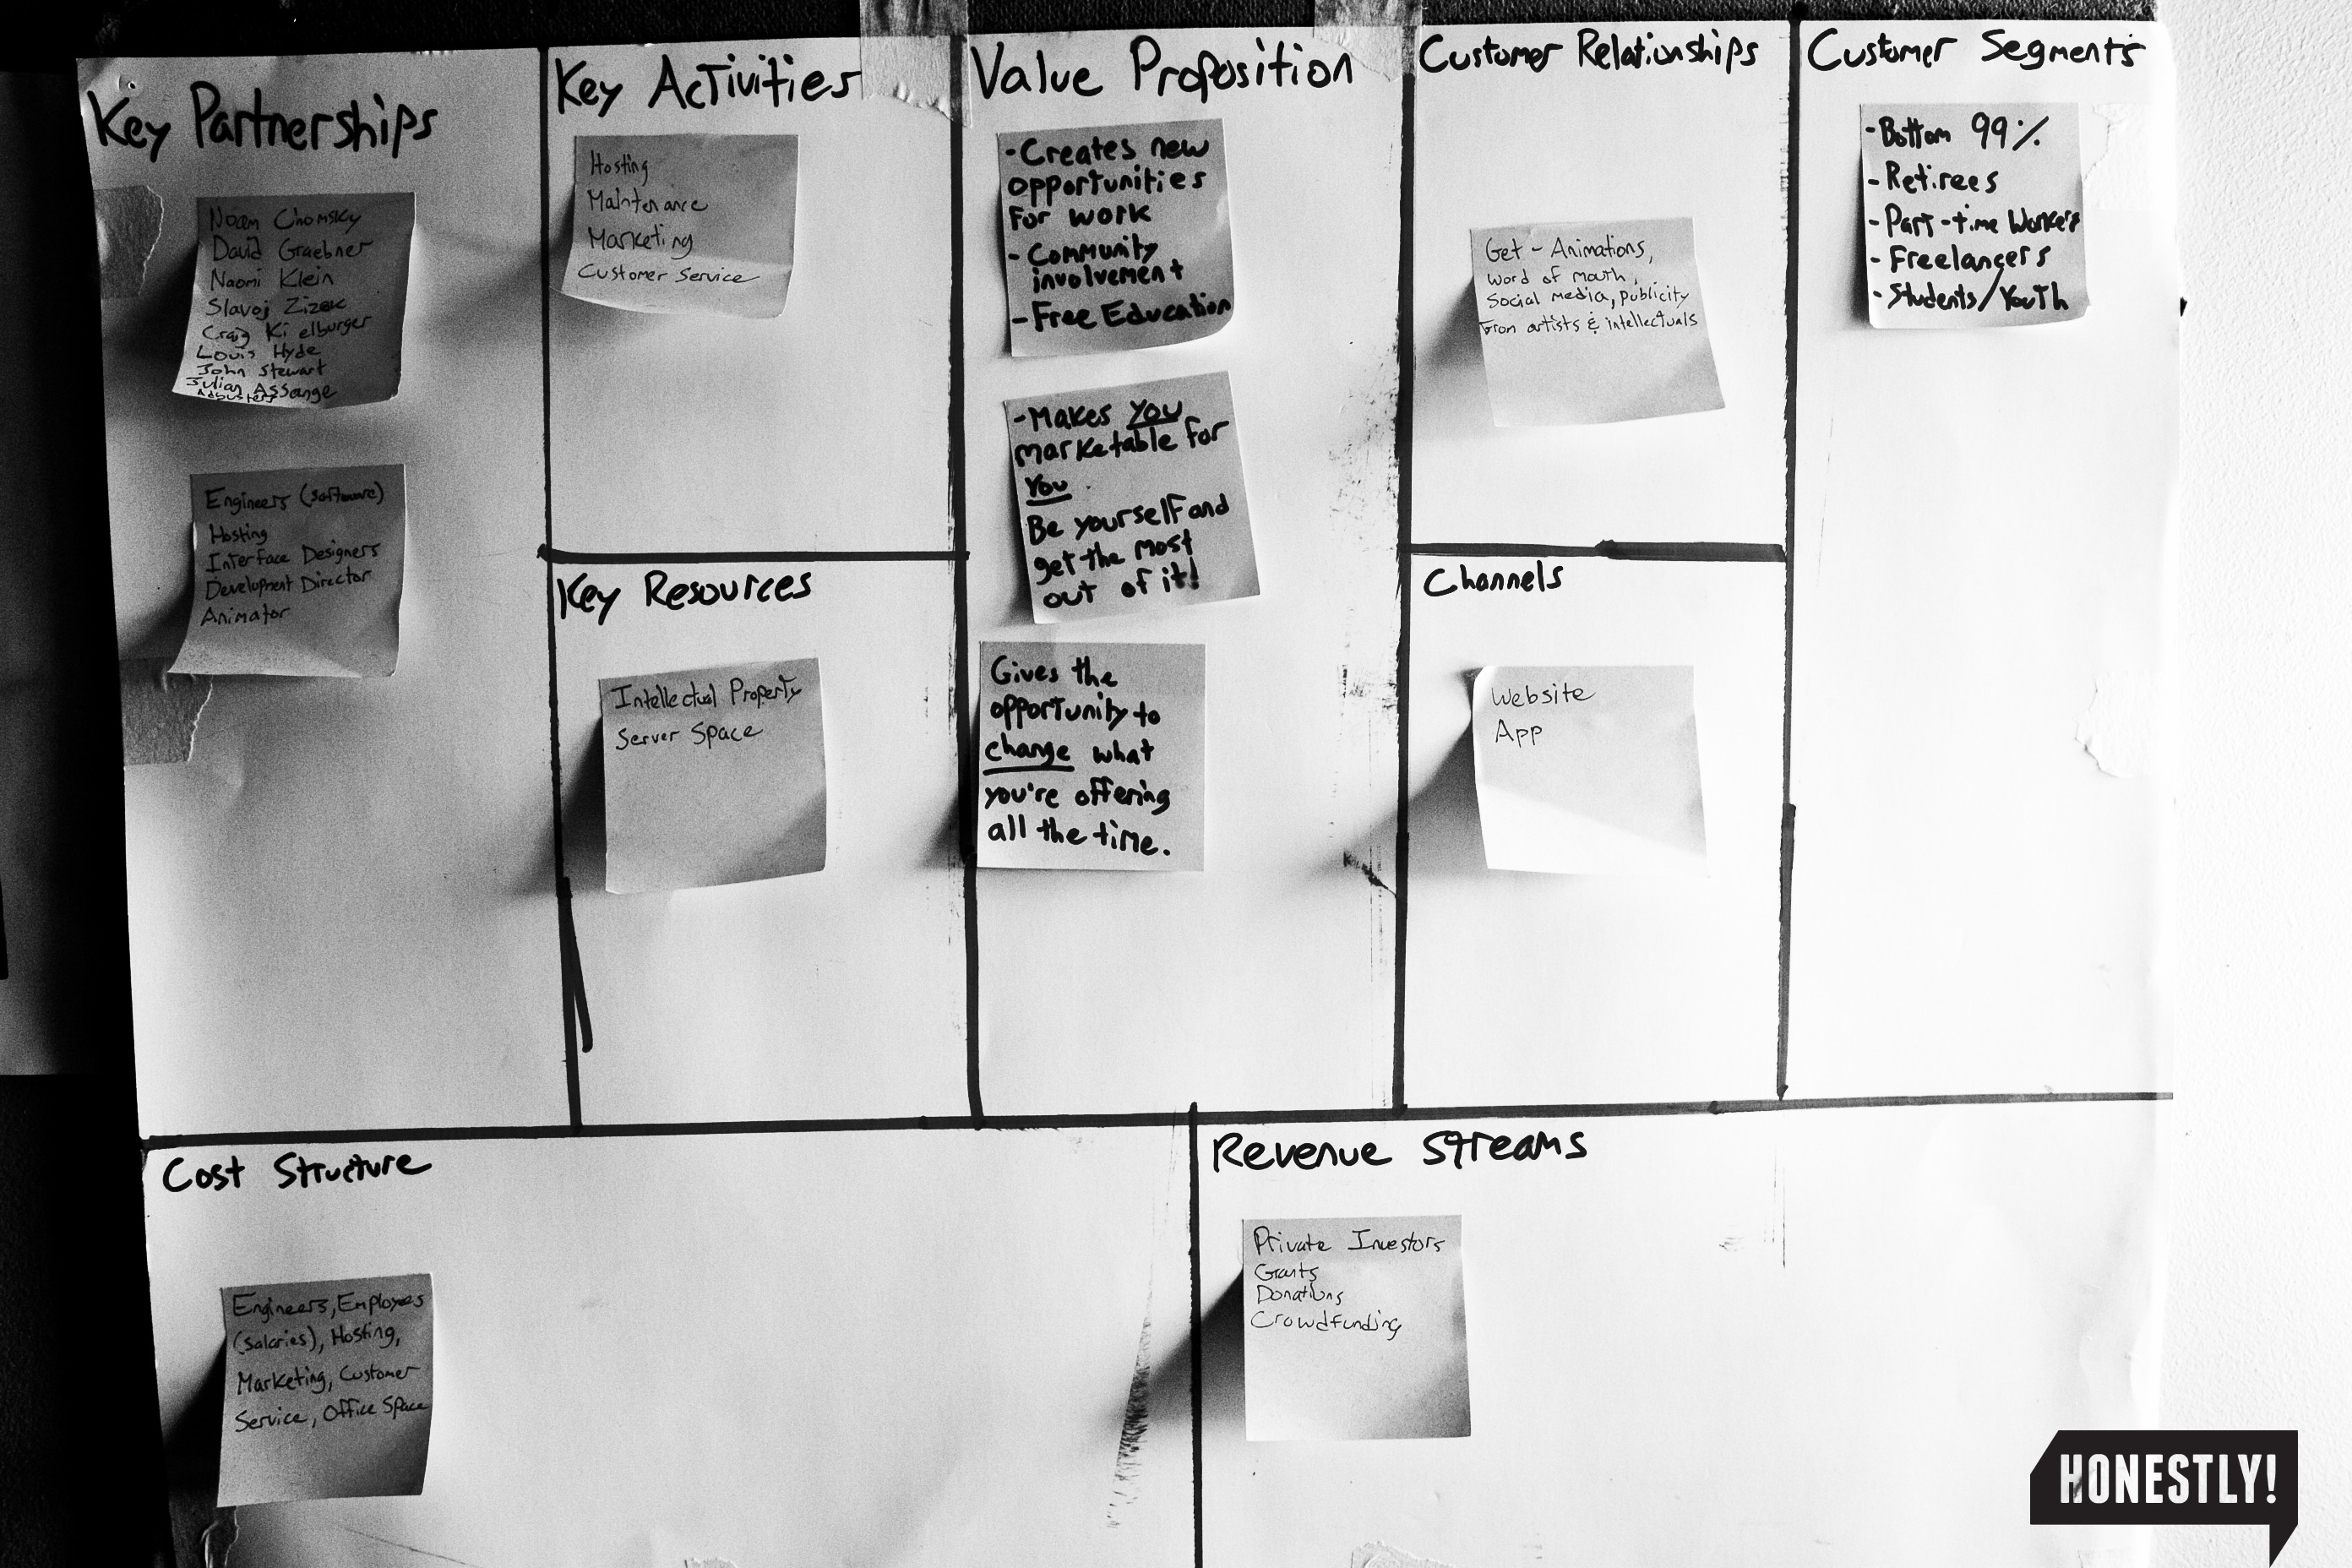 Key Partnerships
Noam Chomsky
David Graebner
Naomi Klein
Slavoj Zizek
Craig Kielburger
Louis Hyde
John Stewart
Julian Assange
Adbusters
Engineers (software)
Hosting
Interface Designers
Development Director
Animator
Key Activities
Hosting
Maintenance
Marketing
Customer Service
Key Resources
Intellectual Property
Server Space
Value Proposition
- Creates new
opportunities
for work
- Community
involvement
- Free Education
- Makes YOU
marketable for
YOU
Be yourself and
get the most
out of it!
Gives the
opportunity to
change what
you're offering
all the time.
Customer Relationships
Get - Animations,
word of mouth,
Social media, publicity
from artists & intellectuals
Channels
Website
App
Customer Segments
- Bottom 99%
- Retirees
- Part-time Workers
- Freelancers
- Students/Youth
Cost Structure
Engineers, Employees
(salaries), Hosting,
Marketing, Customer
Service, Office Space
Revenue Streams
Private Investors
Grants
Donations
Crowdfunding
HONESTLY!